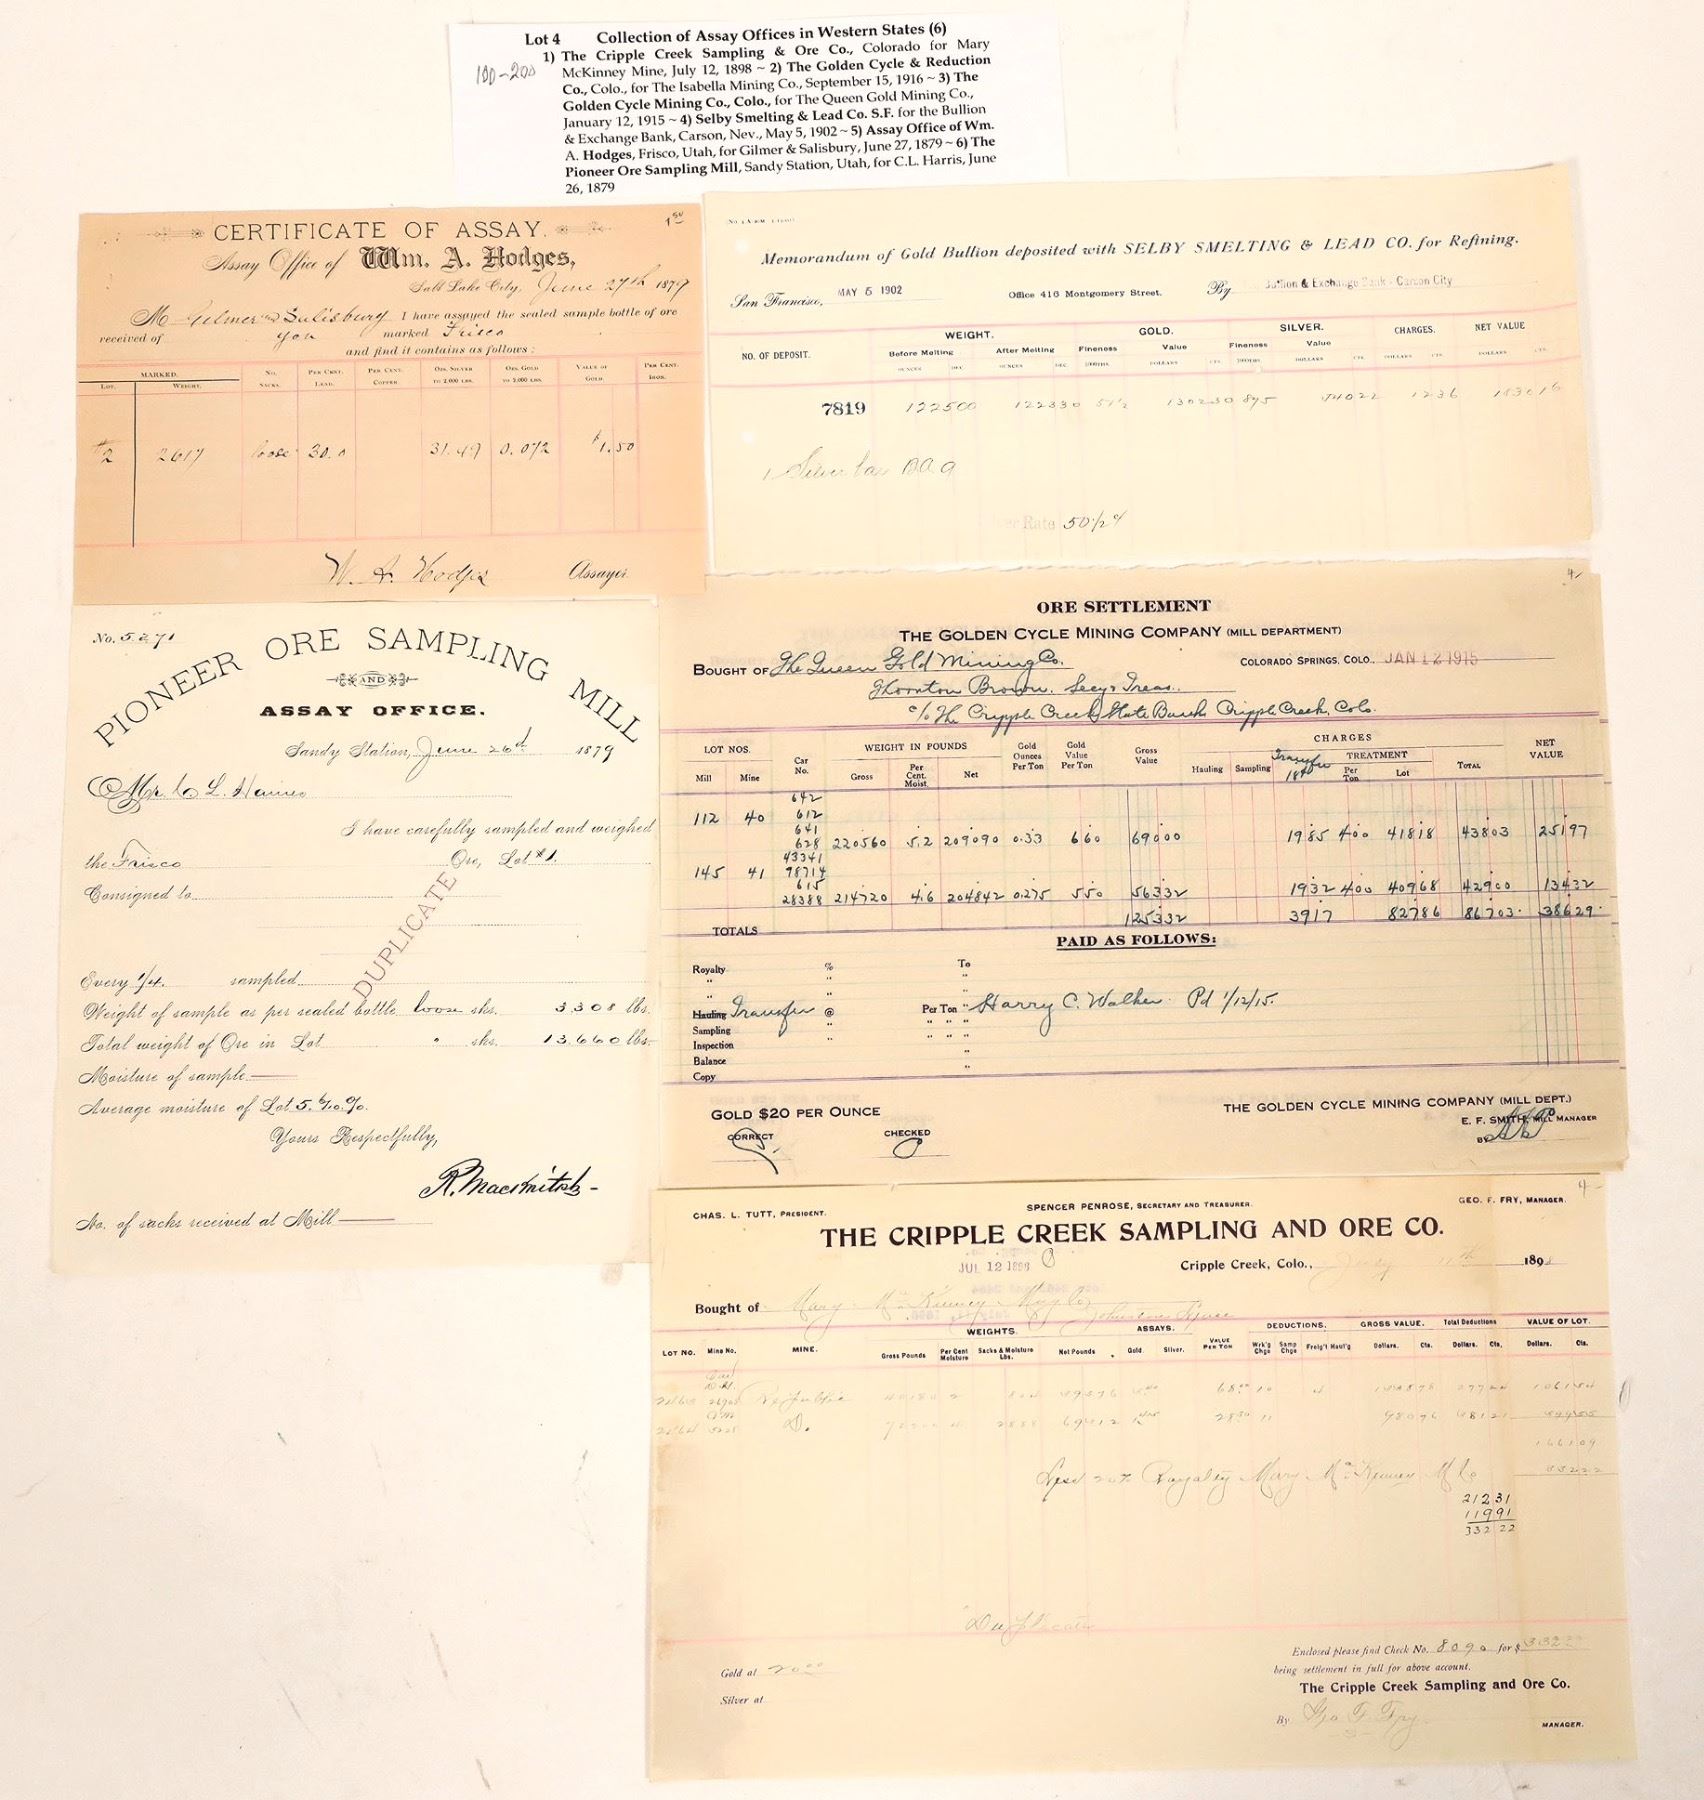 Lot 4 Collection of Assay Offices in Western States (6)
100-200
1) The Cripple Creek Sampling & Ore Co., Colorado for Mary
McKinney Mine, July 12, 1898 ~ 2) The Golden Cycle & Reduction
Co., Colo., for The Isabella Mining Co., September 15, 1916 ~ 3) The
Golden Cycle Mining Co., Colo., for The Queen Gold Mining Co.,
January 12, 1915 ~ 4) Selby Smelting & Lead Co. S.F. for the Bullion
& Exchange Bank, Carson, Nev., May 5, 1902 ~ 5) Assay Office of Wm.
A. Hodges, Frisco, Utah, for Gilmer & Salisbury, June 27, 1879 ~ 6) The
Pioneer Ore Sampling Mill, Sandy Station, Utah, for C.L. Harris, June
26, 1879
CERTIFICATE OF ASSAY.
Assay Office of Wm. A. Hodges,
Salt Lake City, June 27th 1879
M Gilmer and Salisbury I have assayed the sealed sample bottle of ore
received of you marked Frisco
and find it contains as follows:
MARKED. No. SACKS. PER CENT. LEAD. PER CENT. COPPER OZS. SILVER TO 2,000 LBS. OZS. GOLD TO 2,000 LBS. VALUE OF GOLD. PER CENT. IRON.
LOT. WEIGHT.
#2 2617 loose 30.0 31.49 0.072 $1.50
W. A. Hodges Assayer.
Memorandum of Gold Bullion deposited with SELBY SMELTING & LEAD CO. for Refining.
San Francisco, MAY 5 1902 Office 416 Montgomery Street. By Bullion & Exchange Bank - Carson City
NO. OF DEPOSIT. WEIGHT. GOLD. SILVER. CHARGES. NET VALUE
Before Melting After Melting Fineness Value Fineness Value
OUNCES DEC. OUNCES DEC. DOLLARS CTS. DOLLARS CTS. DOLLARS CTS. DOLLARS CTS.
7819 122500 122330 51½ 130230 895 54022 1236 183016
1 Silver bar
Rate 50½
No. 5271
PIONEER ORE SAMPLING MILL
AND
ASSAY OFFICE.
Sandy Station, June 26d 1879
Mr. C L Harris
I have carefully sampled and weighed
the Frisco Ore, Lot #1
Consigned to
DUPLICATE
Every 1/4. sampled
Weight of sample as per sealed bottle loose sks. 3308 lbs.
Total weight of Ore in Lot " sks. 13.660 lbs.
Moisture of sample
Average moisture of Lot 5. 6/10 %.
Yours Respectfully,
No. of sacks received at Mill
ORE SETTLEMENT
THE GOLDEN CYCLE MINING COMPANY (MILL DEPARTMENT)
BOUGHT OF The Queen Gold Mining Co. COLORADO SPRINGS, COLO. JAN 12 1915
Thornton Brown, Secy & Treas.
c/o The Cripple Creek State Bank Cripple Creek, Colo.
LOT NOS. Car No. WEIGHT IN POUNDS Gold Ounces Per Ton Gold Value Per Ton Gross Value CHARGES NET VALUE
Mill Mine Gross Per Cent. Moist. Net Hauling Sampling Transfer TREATMENT Per Ton Lot TOTAL
642
112 40 612
641
628 220560 5.2 209090 0.33 660 69000 1985 400 41818 43803 25197
43341
145 41 78714
615
28388 214720 4.6 204842 0.275 550 56332 1932 400 40968 42900 13432
TOTALS 125332 3917 82786 86703 38629
PAID AS FOLLOWS:
Royalty % To
Hauling Transfer @ Per Ton " Harry C. Walker Pd 1/12/15.
Sampling
Inspection
Balance
Copy
GOLD $20 PER OUNCE THE GOLDEN CYCLE MINING COMPANY (MILL DEPT.)
CORRECT CHECKED E. F. SMITH, MILL MANAGER
BY
CHAS. L. TUTT, PRESIDENT. SPENCER PENROSE, SECRETARY AND TREASURER. GEO. F. FRY, MANAGER.
THE CRIPPLE CREEK SAMPLING AND ORE CO.
JUL 12 1898 Cripple Creek, Colo., July 189
Bought of Mary McKinney Mng Co
LOT NO. Mine No. MINE. WEIGHTS. ASSAYS. VALUE PER TON DEDUCTIONS. GROSS VALUE. Total Deductions VALUE OF LOT.
Gross Pounds Per Cent Moisture Sacks & Moisture Lbs. Net Pounds Gold. Silver. Wrk'g Chgs Samp Chge Freig't Haul'g Dollars. Cts. Dollars. Cts. Dollars. Cts.
Republic
Do.
166109
Less 20% Royalty Mary McKinney M Co 33222
21231
11991
33222
Duplicate
Enclosed please find Check No. 8090 for $ 332
being settlement in full for above account.
Gold at 20.00
The Cripple Creek Sampling and Ore Co.
Silver at
By Geo F. Fry
MANAGER.